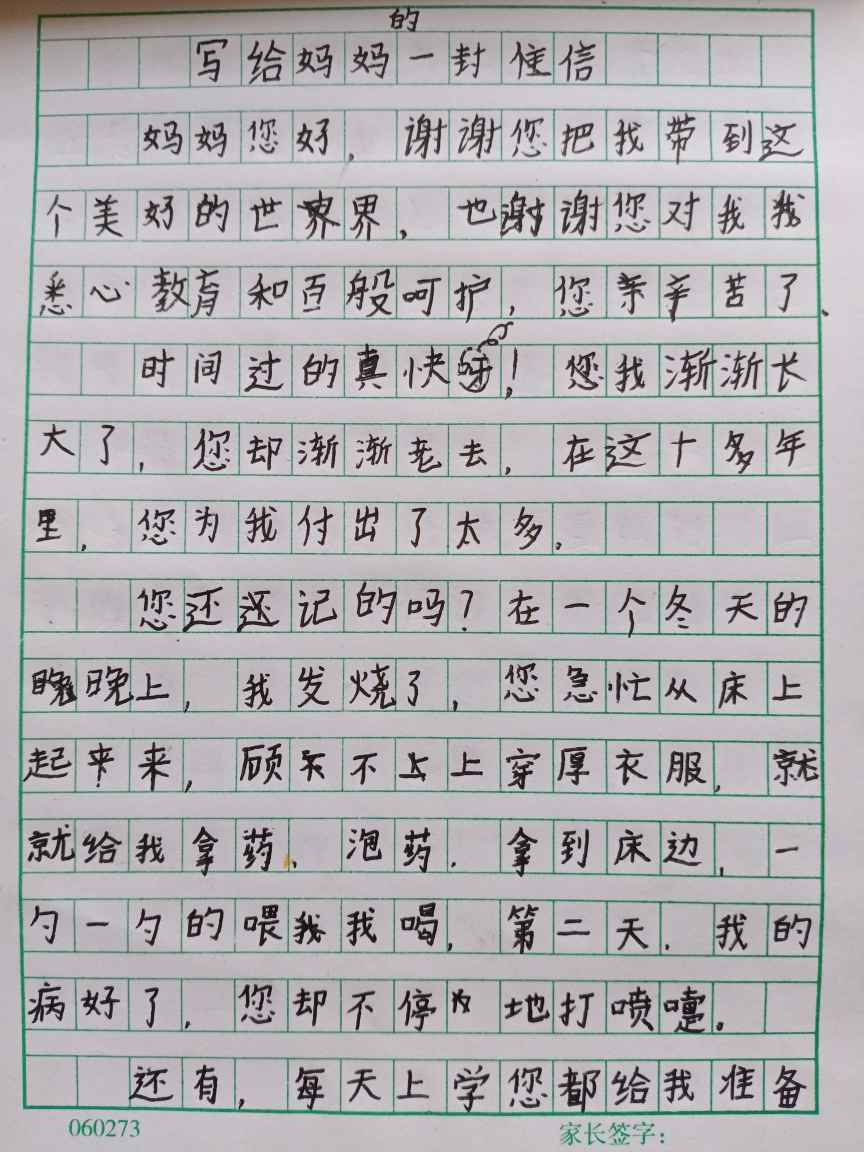 的
写给妈妈一封信
妈妈您好，谢谢您把我带到这
个美好的世界，也谢谢您对我
悉心教育和百般呵护，您辛苦了、
时间过的真快呀！我渐渐长
大了，您却渐渐老去，在这十多年
里，您为我付出了太多，
您还记的吗？在一个冬天的
晚上，我发烧了，您急忙从床上
起来，顾不上穿厚衣服，就
就给我拿药、泡药．拿到床边，一
勺一勺的喂我喝，第二天．我的
病好了，您却不停地打喷嚏。
还有，每天上学您都给我准备
060273 家长签字：